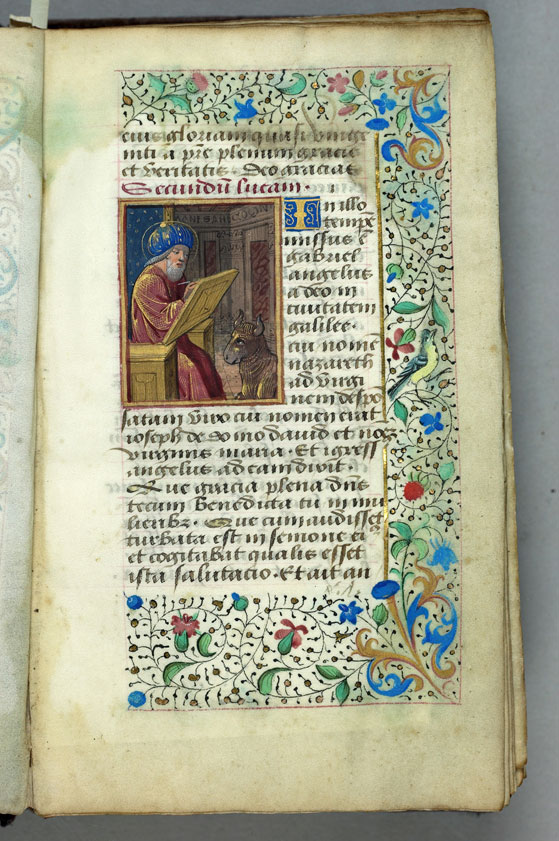 eius gloriam quasi unige
niti a pr̄e plenum gracie
et veritatis · Deo gracias
Secundū lucam ·
In illo
tempr̄e
missus ē
gabriel
angelus
a deo in
civitatem
galilee ·
cui nomē
nazareth
ad virgi
nem despō
satam viro cui nomen erat
ioseph de domo david et nom̄
virginis maria · Et īgress
angelus ad eam dixit ·
Ave gracia plena dn̄s
tecum Benedicta tu in mu
lieribꝫ · Que cum audisset
turbata est in semone ei
et cogitabat qualis esset
ista salutacio · Et ait an